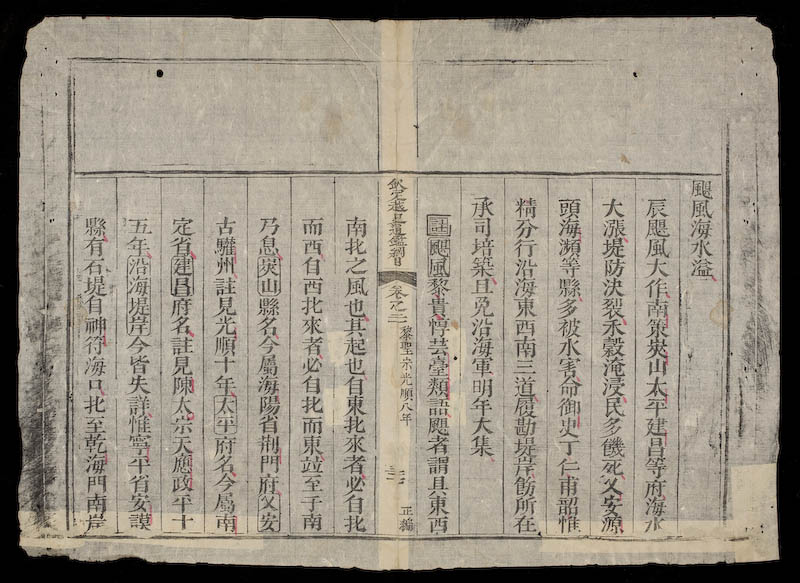 颶風海水溢
辰颶風大作南策炭山太平建昌等府海水
大漲堤防決裂禾穀淹浸民多饑死乂安源
頭海瀕等縣多被水害命御史丁仁甫韶惟
精分行沿海東西南三道履勘堤岸飭所在
承司培築且免沿海軍明年大集
註颶風黎貴惇芸臺類語颶者謂具東西
欽定越史通鑑綱目
卷之二
黎聖宗光順八年
正編
南北之風也其起也自東北來者必自北
而西自西北來者必自北而東竝至于南
乃息炭山縣名今屬海陽省荆門府乂安
古驩州註見光順十年太平府名今屬南
定省建昌府名註見陳太宗天應政平十
五年沿海堤岸今皆失詳惟寧平省安謨
縣有石堤自神符海口北至乾海門南岸